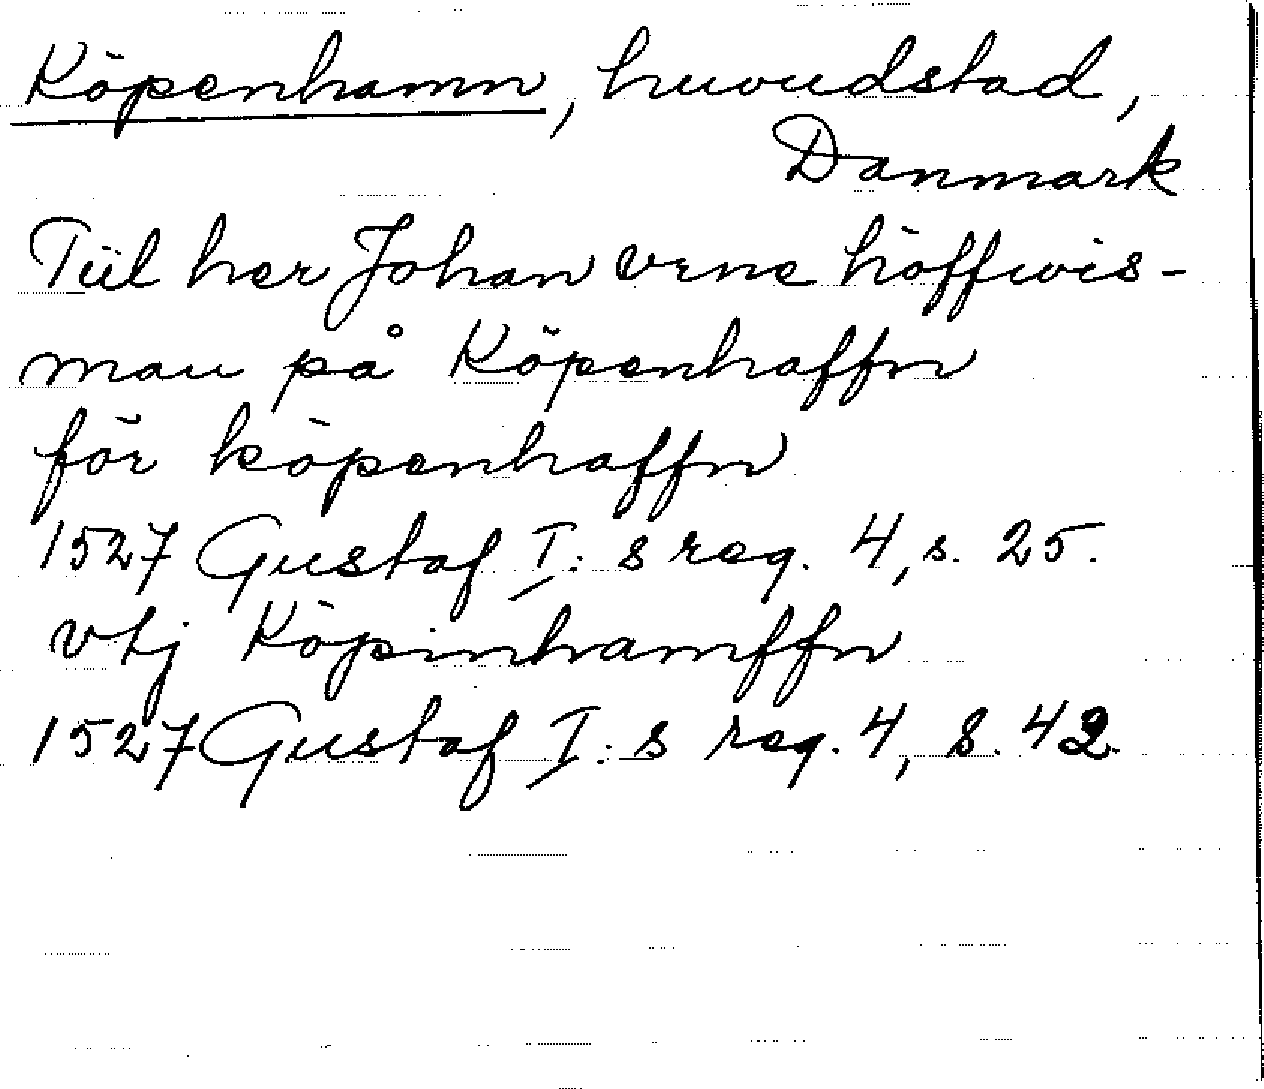 Köpenhamn, huvudstad,
Danmark
Tiil her Johan vrne höffwis-
man på Köpenhaffn
för köpenhaffn
1527 Gustaf I:s reg. 4, s. 25.
vtj Köpinhamffn
1527 Gustaf I:s reg. 4, s. 42.